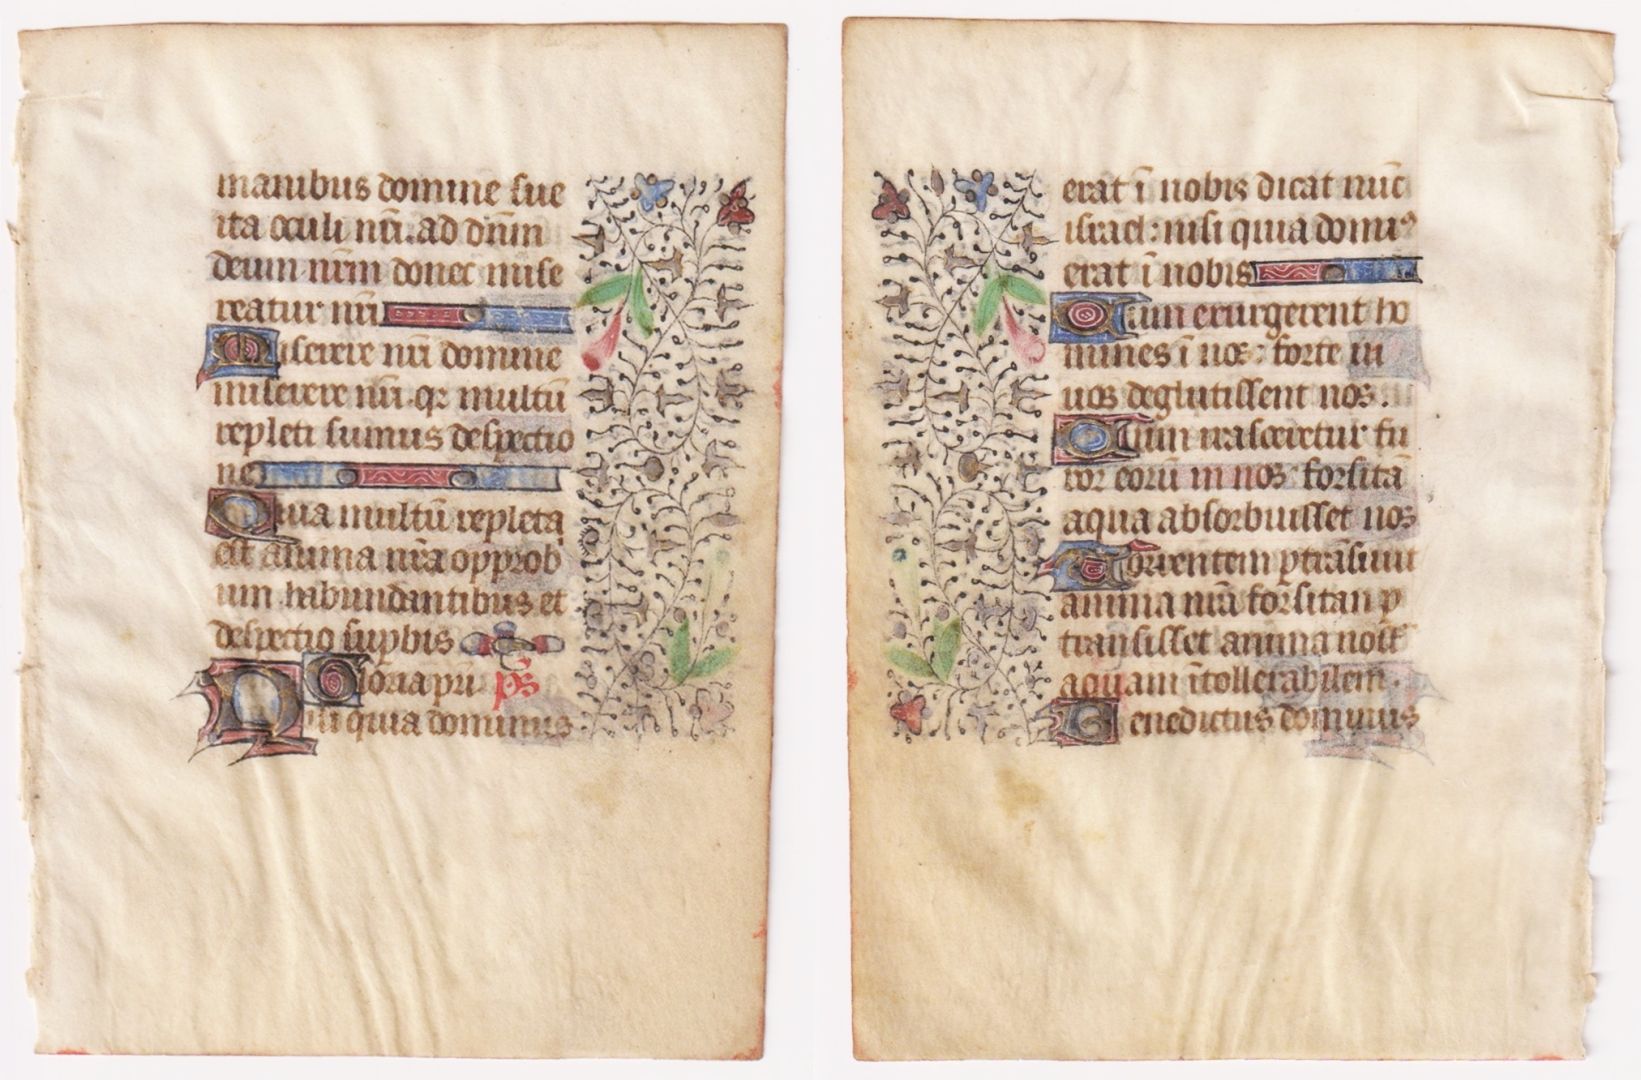 manibus domine sue
ita oculi nr̄i. ad dn̄m
deum nr̄m donec mise
reatur nr̄i
Miserere nr̄i domine
miserere nr̄i. qꝛ multū
repleti sumus despectio
ne
Quia multū repleta
est anima nr̄a opprob
ium habundantibus et
despectio supbis
Gloria pri. ps
Nisi quia dominus
erat ī nobis dicat nūc
israel: nisi quia domiꝰ
erat ī nobis
Cum exurgerent ho
mines ī nos: forte ui
uos deglutissent nos.
Cum irasceretur fu
ror eorū in nos: forsitā
aqua absorbuisset nos
Torrentem ꝑtrāsiuit
anima nr̄a forsitan ꝑ
transisset anima nost̄
aquam ītollerabilem.
Benedictus dominus